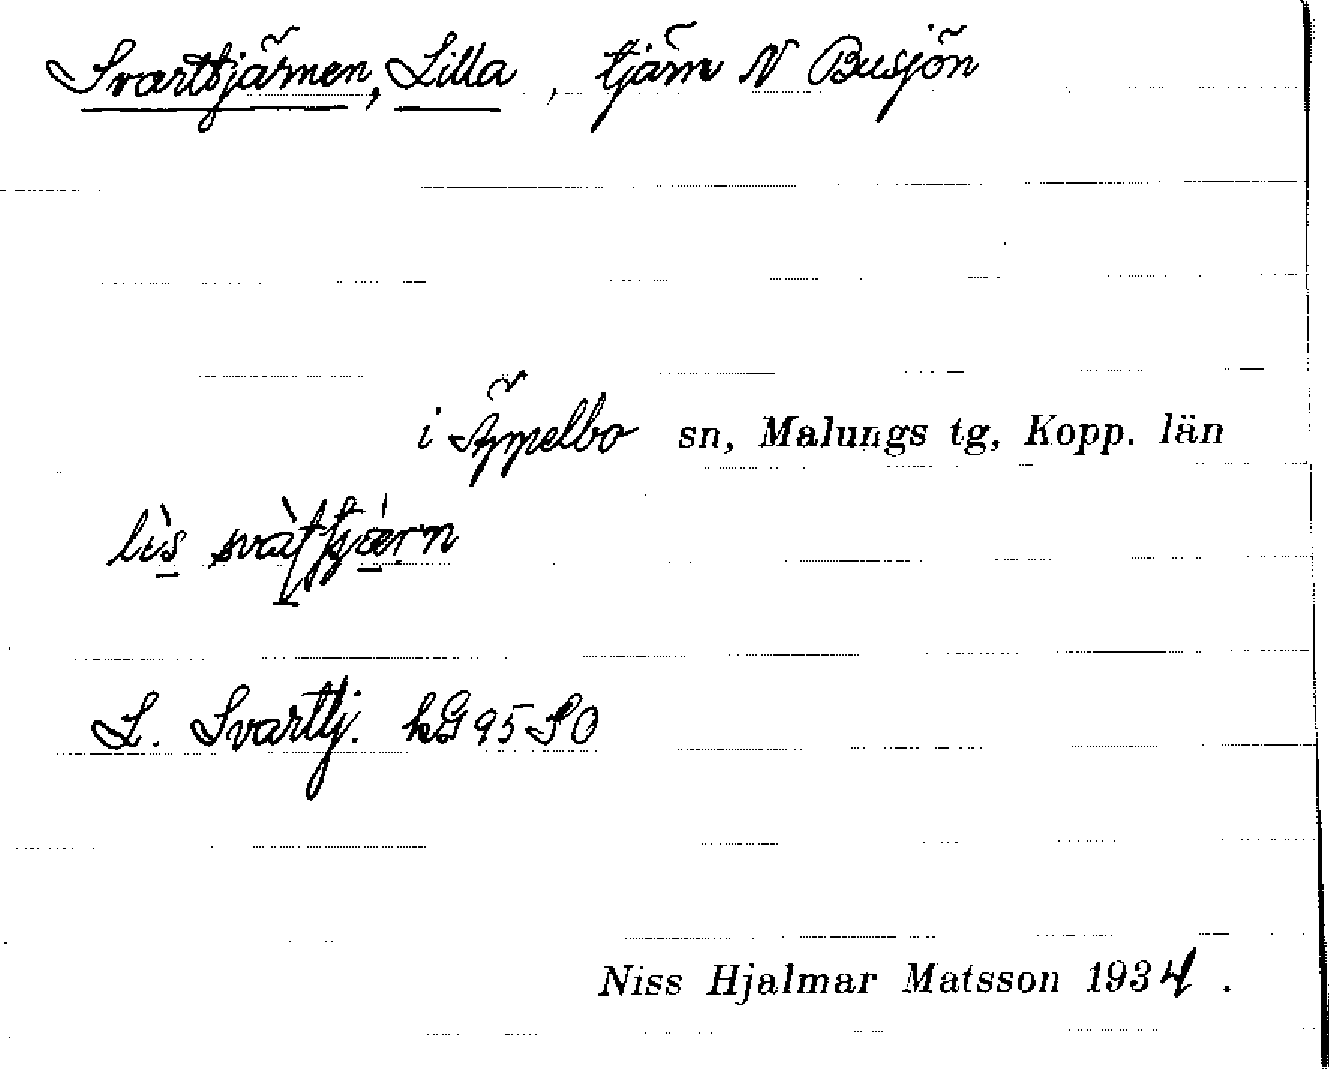 Svarttjärnen, Lilla, tjärn N Busjön
i Äppelbo sn, Malungs tg, Kopp. län
L. Svarttj. kG 95 SO
Niss Hjalmar Matsson 1934.